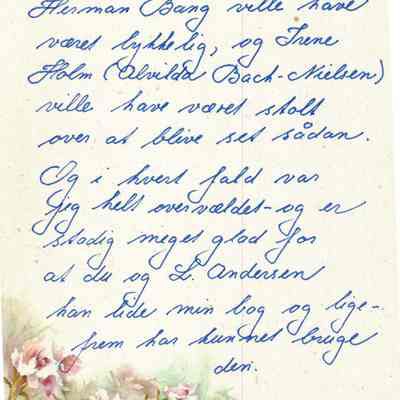 Herman Bang ville have
været lykkelig, og Irene
Holm (Alvilda Bach-Nielsen)
ville have været stolt
over at blive set sådan.
Og i hvert fald var
jeg helt overvældet - og er
stadig meget glad for
at du og L. Andersen
kan lide min bog og lige-
frem har kunnet bruge
den.